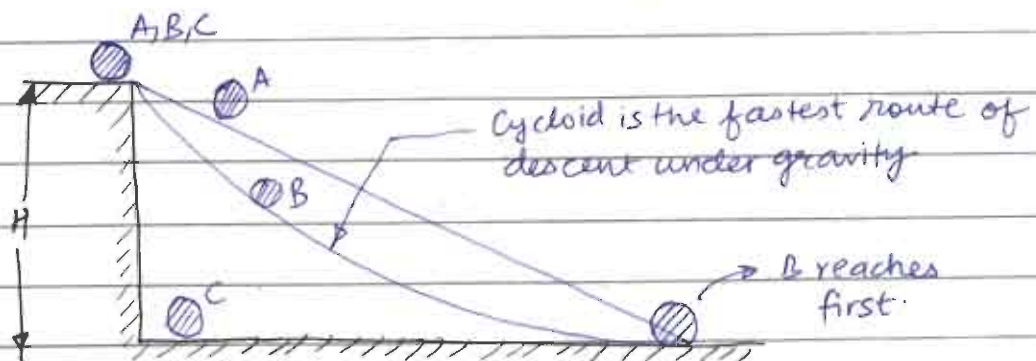 A, B, C
A
Cycloid is the fastest route of
descent under gravity
B
H
B reaches
first.
C